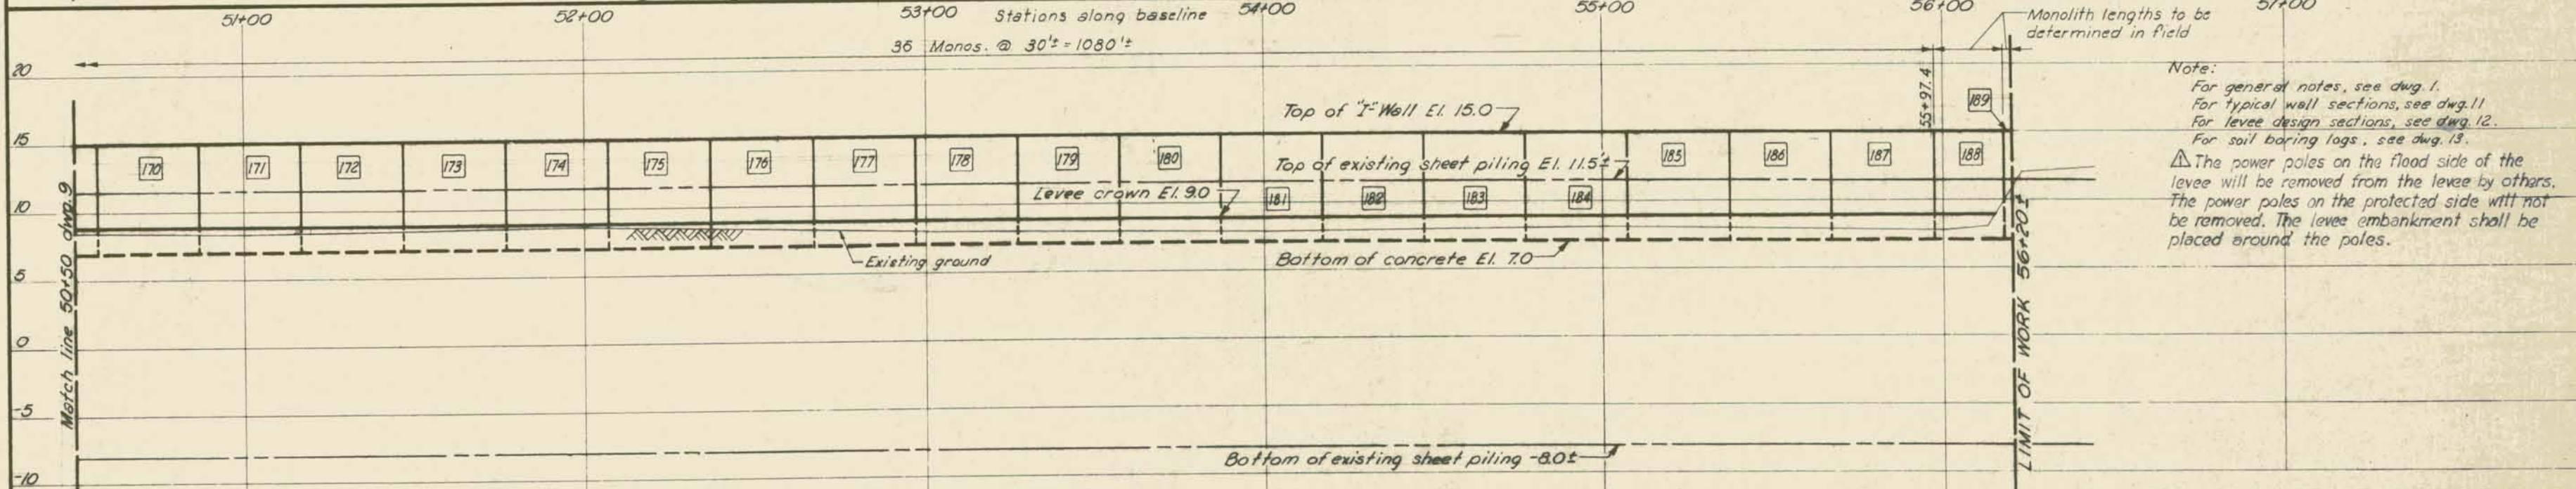 51+00
52+00
53+00
Stations along baseline
54+00
55+00
56+00
57+00
Monolith lengths to be
determined in field
36 Monos. @ 30'± = 1080'±
20
15
10
5
0
-5
-10
Match line 50+50 dwg.9
170
171
172
173
174
175
176
177
178
179
180
181
182
183
184
185
186
187
188
189
55+97.4
Top of "I" Wall El. 15.0
Top of existing sheet piling El. 11.5±
Levee crown El. 9.0
Existing ground
Bottom of concrete El. 7.0
Bottom of existing sheet piling -8.0±
LIMIT OF WORK 56+20±
Note:
For general notes, see dwg. 1.
For typical wall sections, see dwg. 11
For levee design sections, see dwg. 12.
For soil boring logs, see dwg. 13.
The power poles on the flood side of the
levee will be removed from the levee by others.
The power poles on the protected side will not
be removed. The levee embankment shall be
placed around the poles.